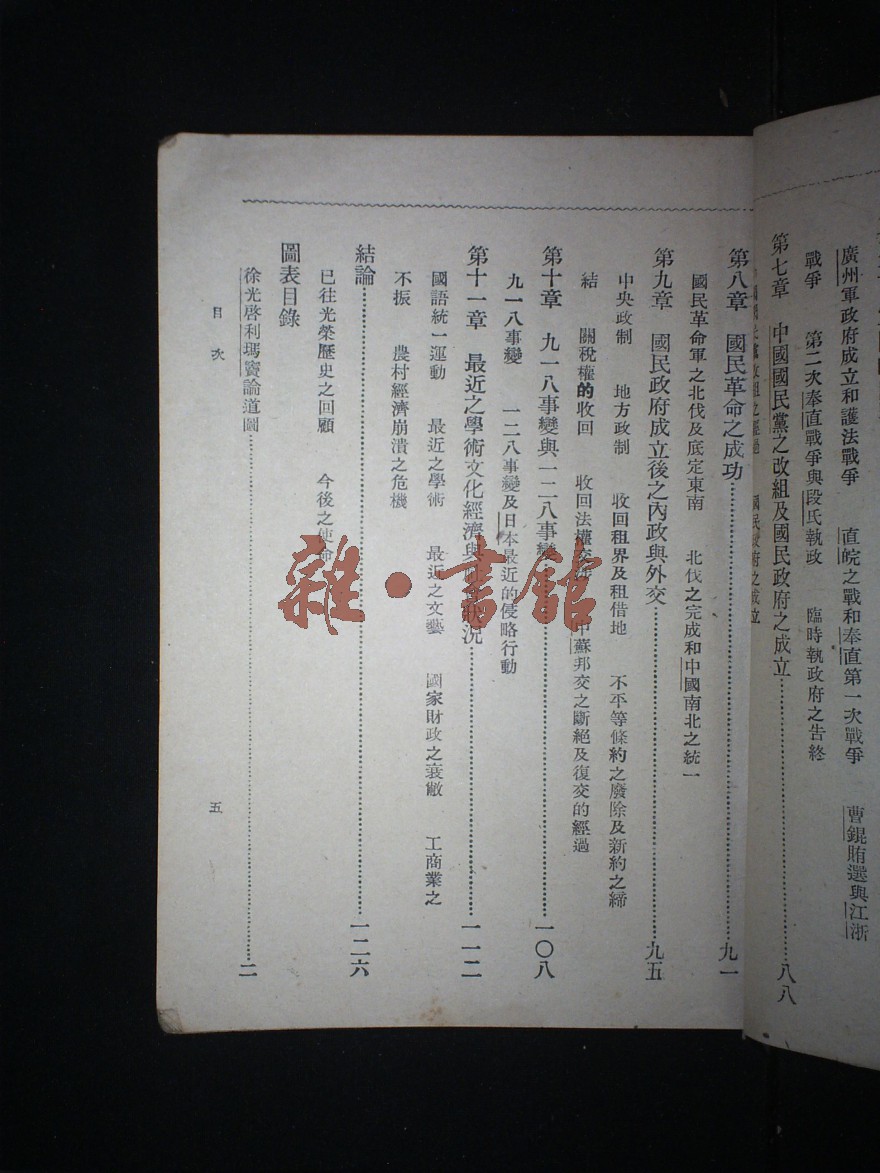 廣州軍政府成立和護法戰爭　直皖之戰和奉直第一次戰爭　曹錕賄選與江浙
戰爭　第二次奉直戰爭與段氏執政　臨時執政府之告終
第七章　中國國民黨之改組及國民政府之成立……八八
國民政府之成立
第八章　國民革命之成功……九一
國民革命軍之北伐及底定東南　北伐之完成和中國南北之統一
第九章　國民政府成立後之內政與外交……九五
中央政制　地方政制　收回租界及租借地　不平等條約之廢除及新約之締
結　關稅權的收回　收回法權交涉　中蘇邦交之斷絕及復交的經過
第十章　九一八事變與一二八事變……一〇八
九一八事變　一二八事變及日本最近的侵略行動
第十一章　最近之學術文化經濟與狀況……一一二
國語統一運動　最近之學術　最近之文藝　國家財政之衰敝　工商業之
不振　農村經濟崩潰之危機
結論……一二六
已往光榮歷史之回顧　今後之使命
圖表目錄
徐光啓利瑪竇論道圖……二
目次
五
雜·書館